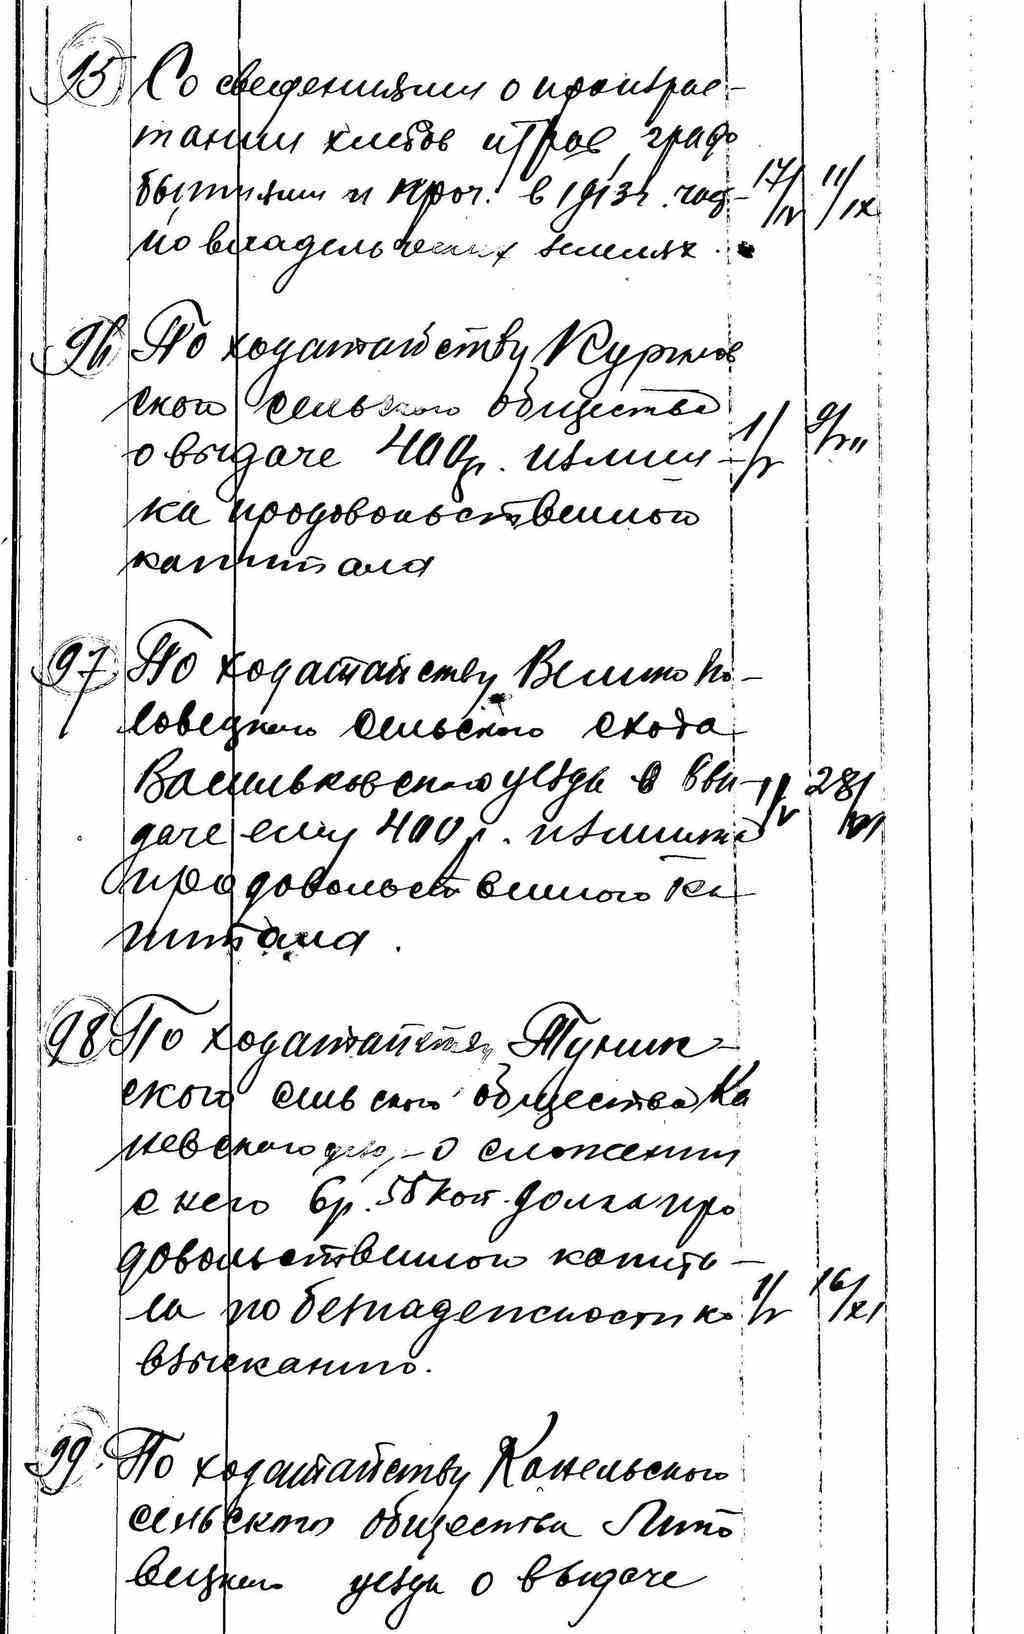 95 Со сведениями о произрас-
тании хлебов и трав, градо
битиями и проч. в 1913г. год- 17/IV 11/IX
по владельческих землях.
96 По ходатайству
ского сельского общества
о выдаче 400р. излиш- 1/V
ка продовольственного
капитала
97 По ходатайству Великопо-
ловецкого сельского схода
Васильковского уезда о вы- 1/V 28/
даче ему 400р. излишка
продовольственного ка
питала.
98 По ходатайству
ского сельского общества Ка
невского уезд. о сложении
с него 6р. 55 коп. долга про
довольственного капита-
ла по безнадежности ко 1/V 16/XI
взысканию.
99. По ходатайству Конельского
сельского общества Липо
вецкого уезда о выдаче